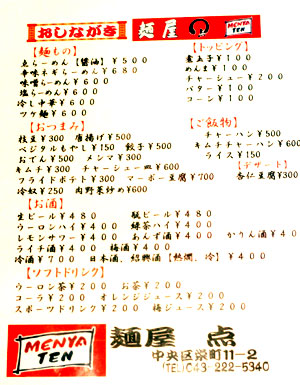 おしながき 麺屋 MENYA TEN
【麺もの】
点らーめん【醤油】¥500
辛味ネギらーめん¥680
味噌らーめん¥600
塩らーめん¥600
冷し中華¥600
ツケ麺¥600
【トッピング】
煮玉子¥100
めんま¥100
チャーシュー¥200
バター¥100
コーン¥100
【おつまみ】
枝豆¥300 唐揚げ¥500
ベジタルもやし¥150 餃子¥500
おでん¥500 メンマ¥300
キムチ¥300 チャーシュー皿¥600
フライドポテト¥300 マーボー豆腐¥700
冷奴¥250 肉野菜炒め¥600
【ご飯物】
チャーハン¥500
キムチチャーハン¥600
ライス¥150
【デザート】
杏仁豆腐¥300
【お酒】
生ビール¥480 瓶ビール¥480
ウーロンハイ¥400 緑茶ハイ¥400
レモンサワー¥400 あんず酒¥400 かりん酒¥400
ライチ酒¥400 梅酒¥400
冷酒¥700 日本酒、紹興酒【熱燗、冷】¥400
【ソフトドリンク】
ウーロン茶¥200 お茶¥200
コーラ¥200 オレンジジュース¥200
スポーツドリンク¥200 梅ジュース¥200
MENYA TEN
麺屋 点
中央区栄町11-2
(TEL)043-222-5340